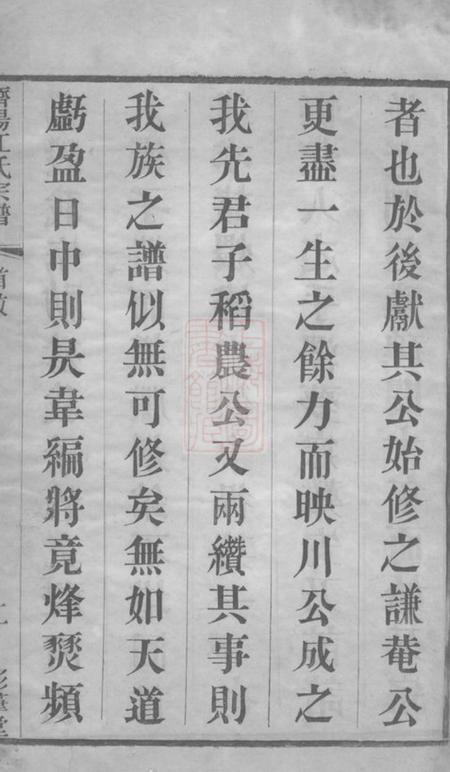 者也於後獻其公始修之謙菴公
更盡一生之餘力而映川公成之
我先君子稻農公又兩纘其事則
我族之譜似無可修矣無如天道
虧盈日中則昃韋編將竟烽燹頻
濟陽江氏宗譜